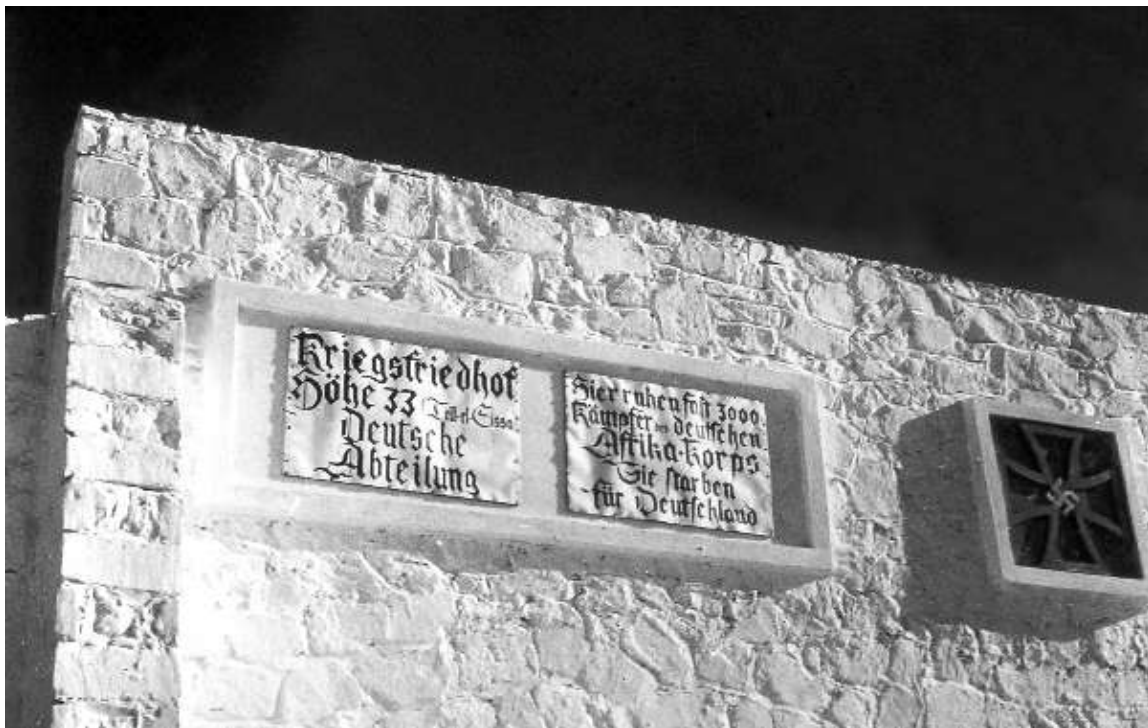 Kriegsfriedhof
Höhe 33 "Tell-el-Eissa"
Deutsche
Abteilung
Hier ruhen fast 3000
Kämpfer des deutschen
Afrika-Korps
Sie starben
für Deutschland